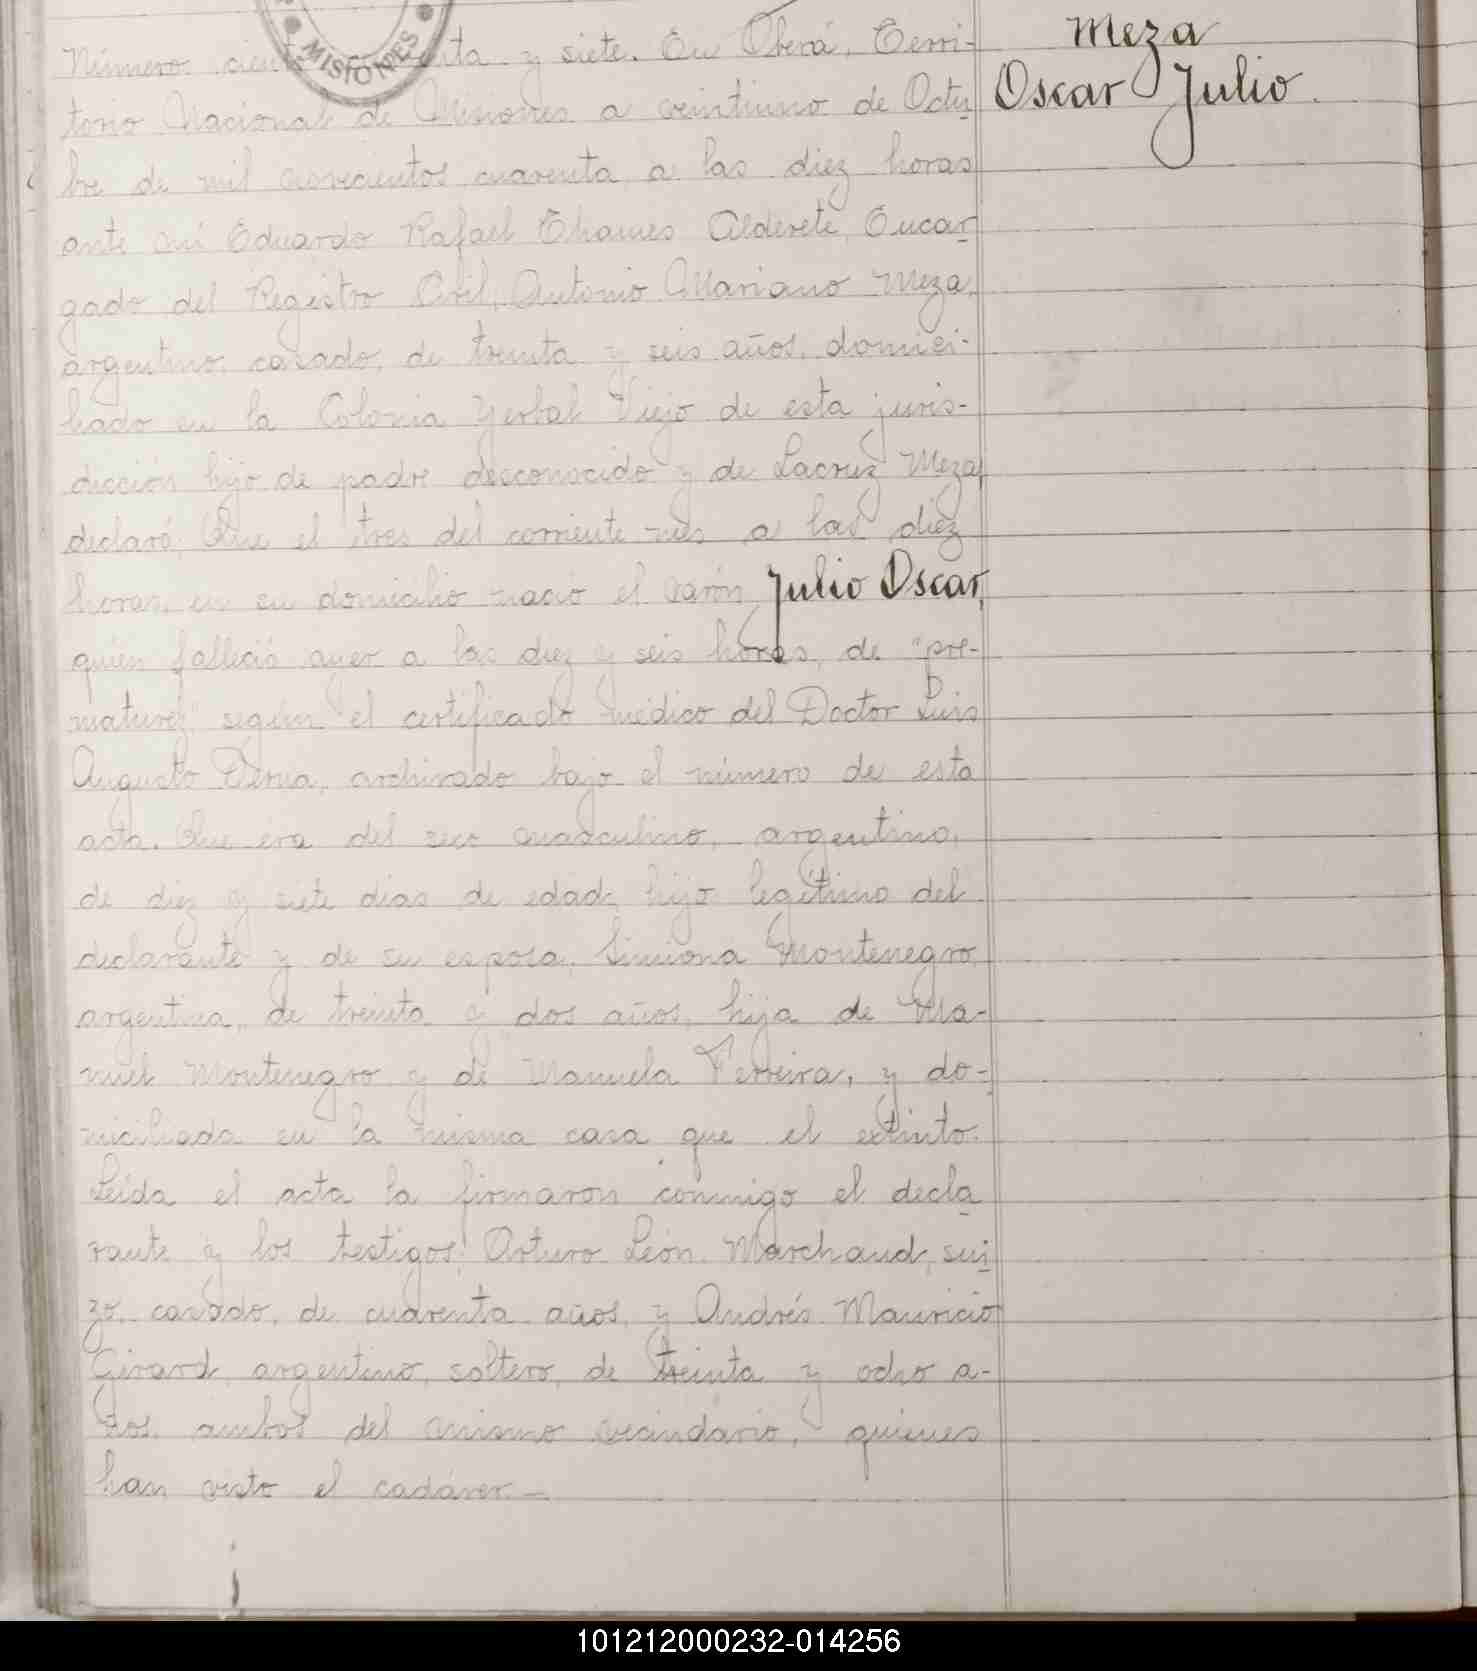 MISIONES
Meza
Oscar Julio.
Número cien y siete. En Oberá, Terri-
torio Nacional de Misiones a veintiuno de Octu
bre de mil novecientos cuarenta a las diez horas
ante mí Eduardo Rafael Thames Alderete, Encar
gado del Registro Civil, Antonio Mariano Meza,
argentino, casado, de treinta y seis años, domici-
liado en la Colonia Yerbal Viejo de esta juris-
dicción hijo de padre desconocido y de Lacruz Meza,
declaró: Que el tres del corriente mes a las diez
horas, en su domicilio nació el varón Julio Oscar,
quien falleció ayer a las diez y seis horas, de "pre-
maturez" según el certificado médico del Doctor Luis
Augusto Derna, archivado bajo el número de esta
acta. Que era del sexo masculino, argentino,
de diez y siete dias de edad, hijo legítimo del
declarante y de su esposa, Simiona Montenegro,
argentina, de treinta y dos años, hija de Ma-
nuel Montenegro y de Manuela Ferreira, y do-
miciliada en la misma casa que el extinto.
Leída el acta la firmaron conmigo el decla
rante y los testigos: Arturo León Marchaud, sui
zo, casado, de cuarenta años, y Andrés Mauricio
Girard, argentino, soltero, de treinta y ocho a-
ños, ambos del mismo vecindario, quienes
han visto el cadáver.—
101212000232-014256